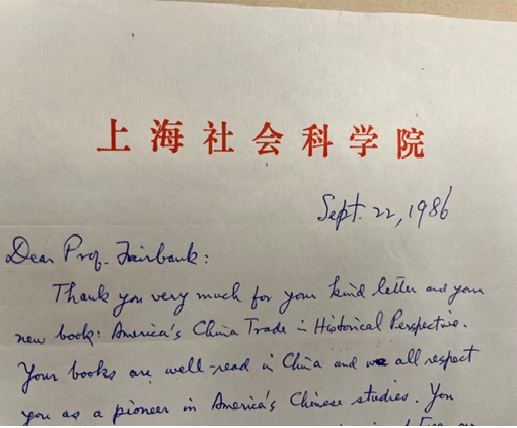 上海社会科学院
Sept. 22, 1986
Dear Prof. Fairbank:
Thank you very much for your kind letter and your
new book: America's China Trade in Historical Perspective.
Your books are well-read in China and we all respect
you as a pioneer in America's Chinese studies. You